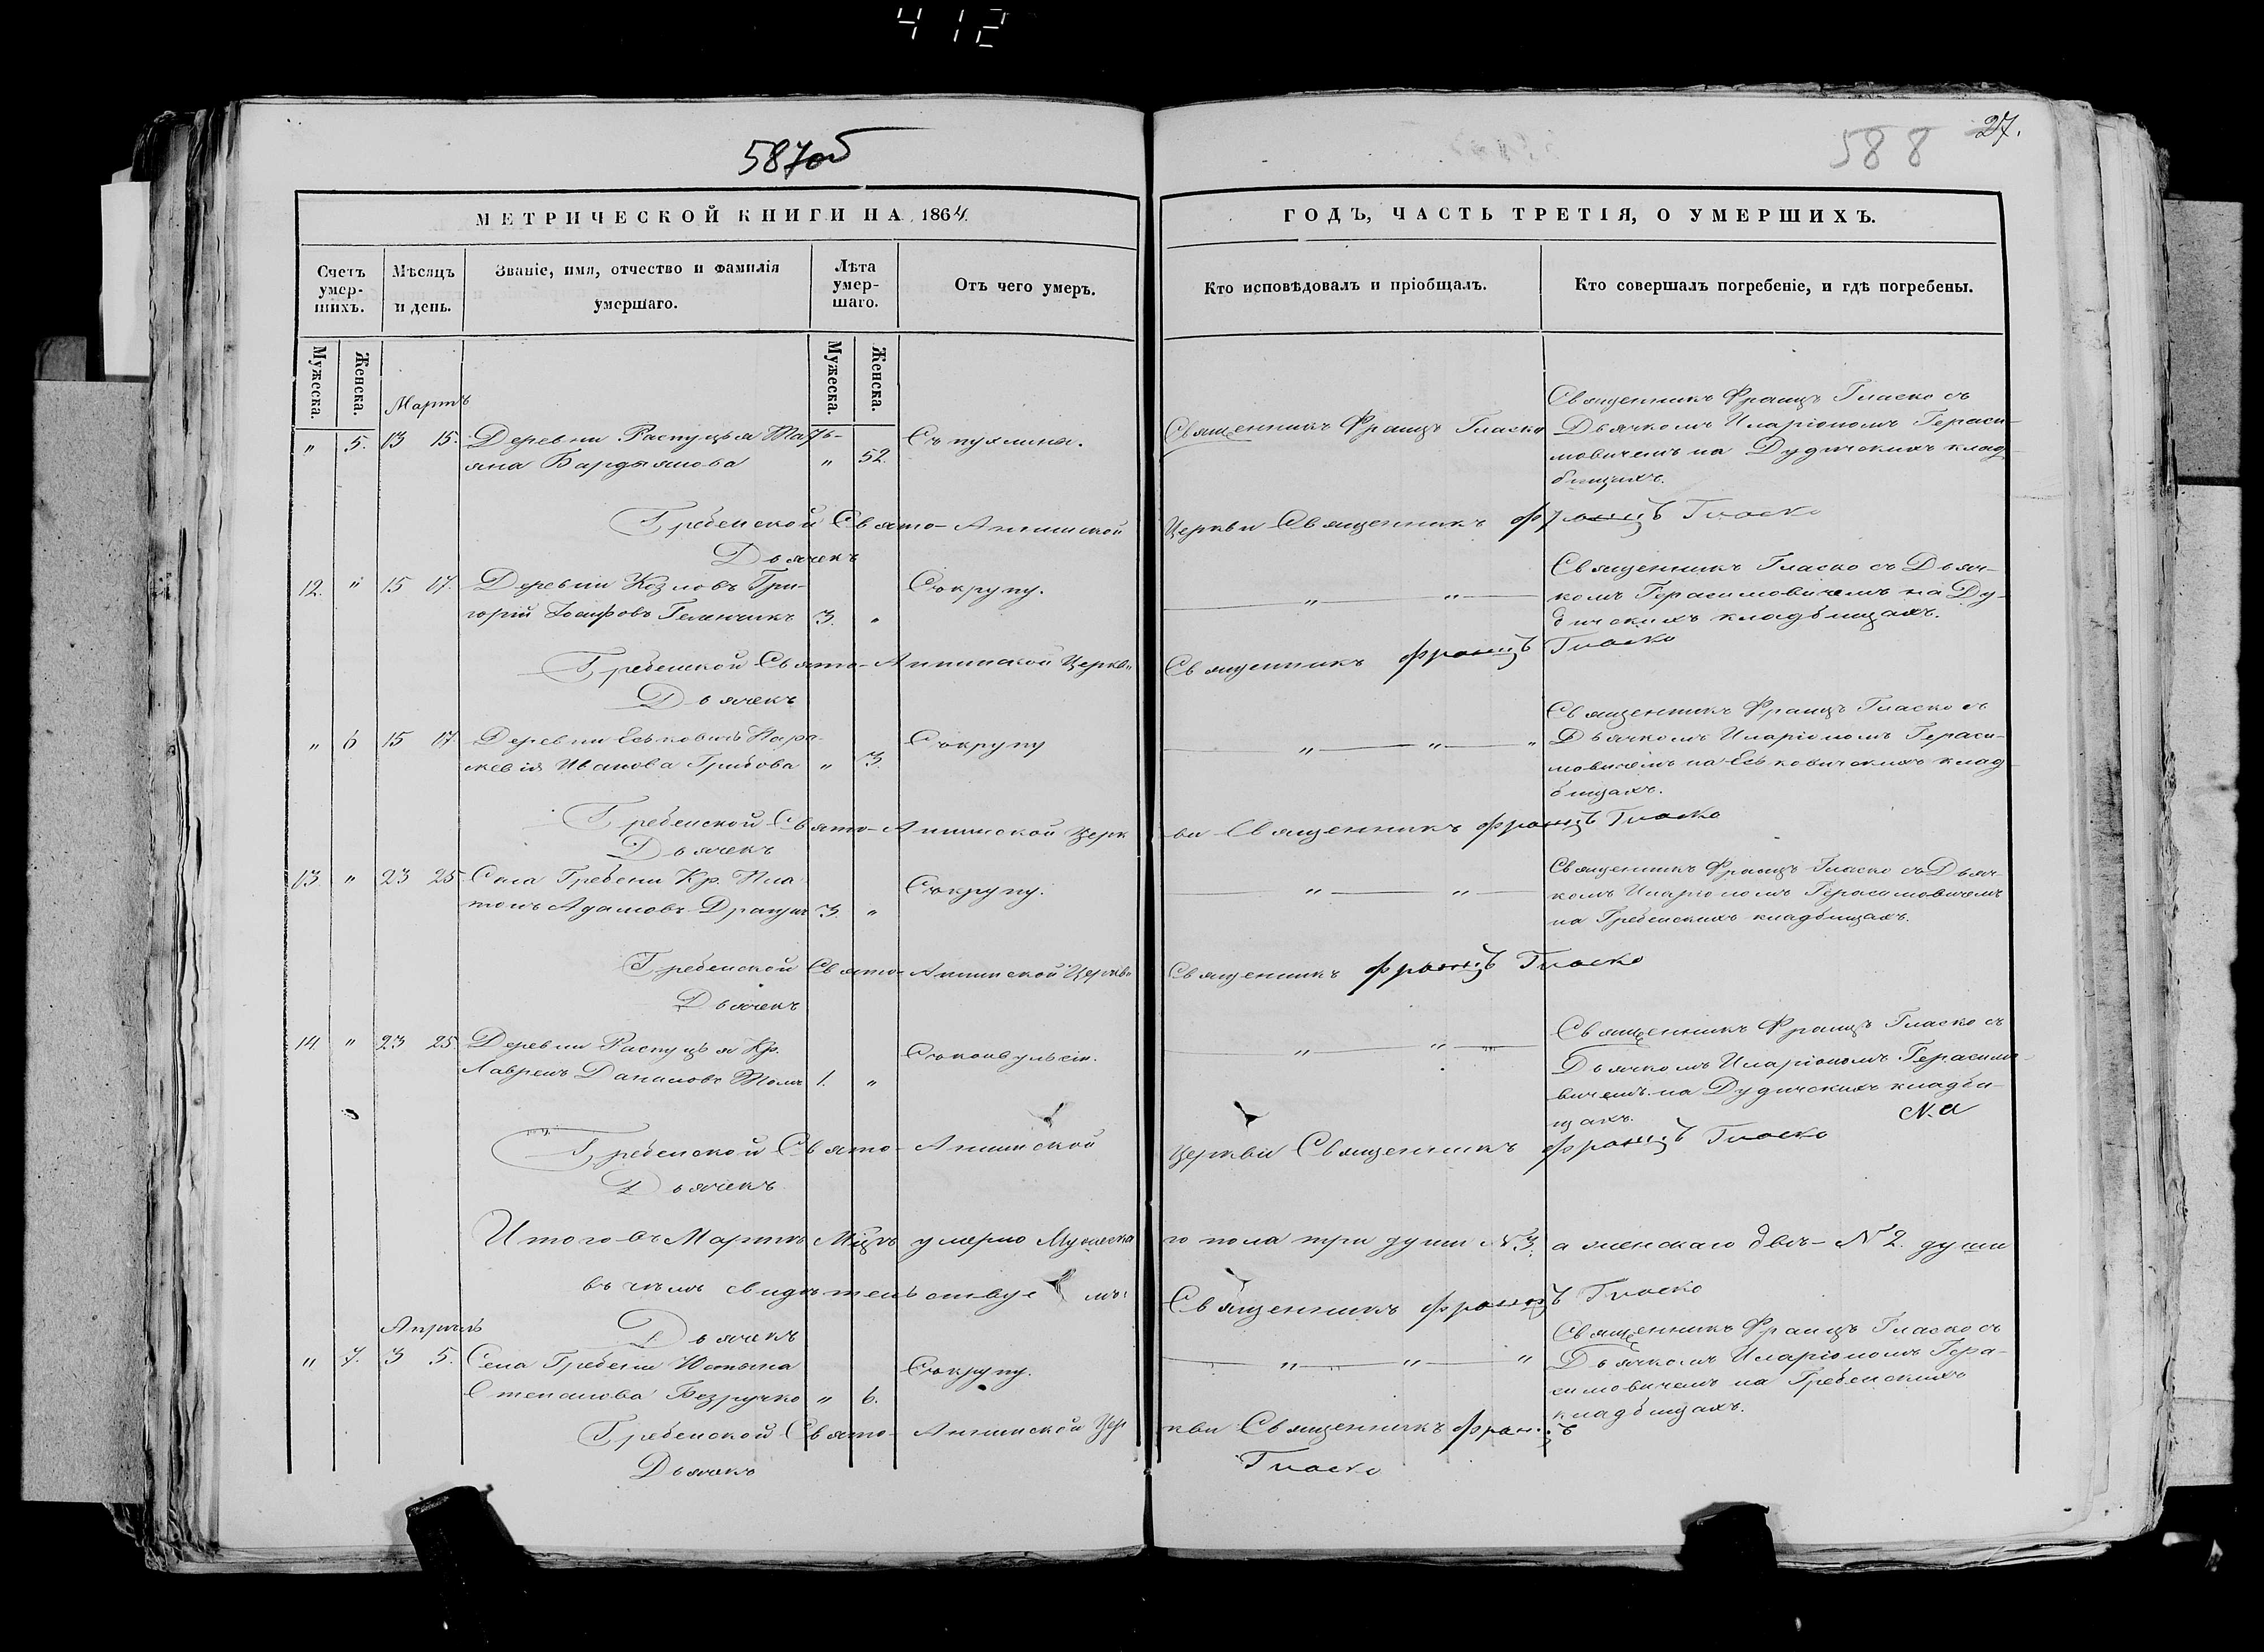 412
587об
588
27.
МЕТРИЧЕСКОЙ КНИГИ НА 1864.
ГОДЪ, ЧАСТЬ ТРЕТІЯ, О УМЕРШИХЪ.
Счетъ умер-шихъ.
Мѣсяцъ и день.
Званіе, имя, отчество и фамилія умершаго.
Лѣта умер-шаго.
Отъ чего умеръ.
Кто исповѣдовалъ и пріобщалъ.
Кто совершалъ погребеніе, и гдѣ погребены.
Мужеска.
Женска.
Мужеска.
Женска.
Мартъ
" 5. 13 15. Деревни Распуцья Тать-
яна " 52.
Священникъ Францъ Гласко
Священникъ Францъ Гласко съ
Дьячкомъ Иларіономъ Гераси-
мовичемъ на Дудичскихъ клад-
бищахъ.
Гребенской Свято-Аннинской
Церкви Священникъ Францъ Гласко
Дьячекъ
12. " 15 17. Деревни Козловъ Гри-
горій Іосифовъ 3. "
Съ крупу.
" "
Священникъ Гласко съ Дьяч-
комъ Герасимовичемъ на Ду-
дичскихъ кладбищахъ.
Гребенской Свято-Аннинской Церкви
Священникъ Францъ Гласко
Дьячекъ
" 6 15 17 Деревни Еськовичъ Пара-
скевія Иванова Грибова " 3.
Съ крупу
" " "
Священникъ Францъ Гласко съ
Дьячкомъ Иларіономъ Гераси-
мовичемъ на Еськовичскихъ клад-
бищахъ.
Гребенской Свято-Аннинской Церк
ви Священникъ Францъ Гласко
Дьячекъ
13 " 23 25 Села Гребени Кр. Пла-
тонъ Адамовъ 3. "
Съ крупу.
" "
Священникъ Францъ Гласко съ Дьяч-
комъ Иларіономъ Герасимовичемъ
на Гребенскихъ кладбищахъ.
Гребенской Свято-Аннинской Церкви
Священникъ Францъ Гласко
Дьячекъ
14. " 23 25. Деревни Распуцья Кр.
Лавренъ Даниловъ 1. "
Съ конвульсіи.
" "
Священникъ Францъ Гласко съ
Дьячкомъ Иларіономъ Герасимо-
вичемъ на Дудичскихъ кладби-
щахъ.
Гребенской Свято-Аннинской
Церкви Священникъ Францъ Гласко
Дьячекъ
Итого въ Мартѣ Мцѣ умерло Мужеска
го пола три души № 3. а женскаго двѣ № 2. души
въ чемъ свидѣтельствуемъ:
Священникъ Францъ Гласко
Дьячекъ
Апрѣль
" 7. 3 5. Села Гребени
Степанова Безручко " 6.
Съ крупу.
" " "
Священникъ Францъ Гласко съ
Дьячкомъ Иларіономъ Гера-
симовичемъ на Гребенскихъ
кладбищахъ.
Гребенской Свято-Аннинской Цер
кви Священникъ Францъ
Дьячекъ
Гласко